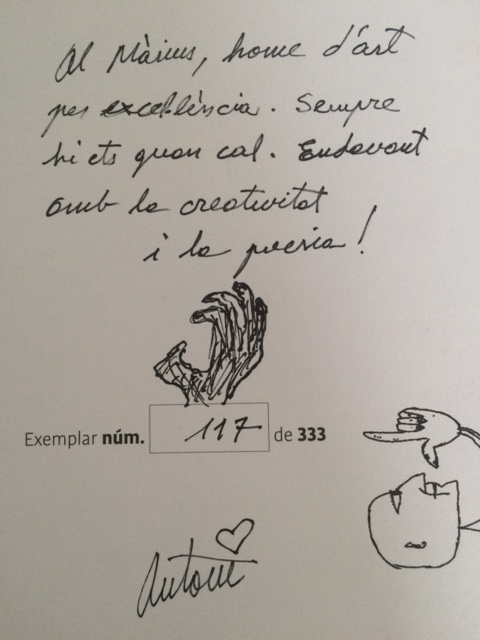 Al Màrius, home d'art
per excel·lència. Sempre
hi ets quan cal. Endavant
amb la creativitat
i la poesia!
Exemplar núm. 117 de 333
Antoni